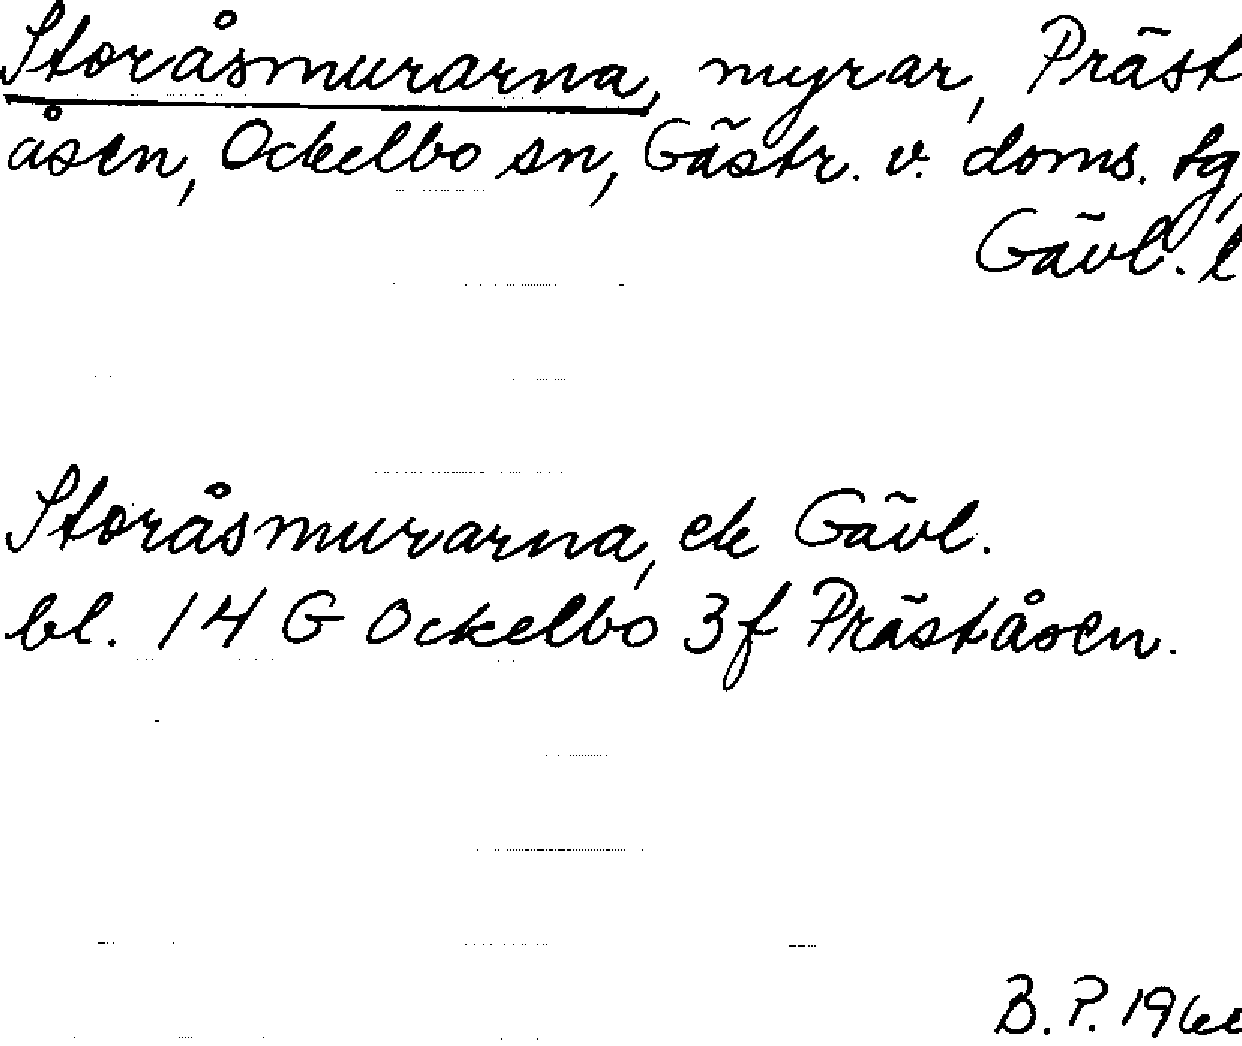 Storåsmurarna, myrar, Präst
åsen, Ockelbo sn, Gästr. v. doms. tg,
Gävl. l
Storåsmurarna, ek Gävl.
bl. 14 G Ockelbo 3f Präståsen.
B.P.